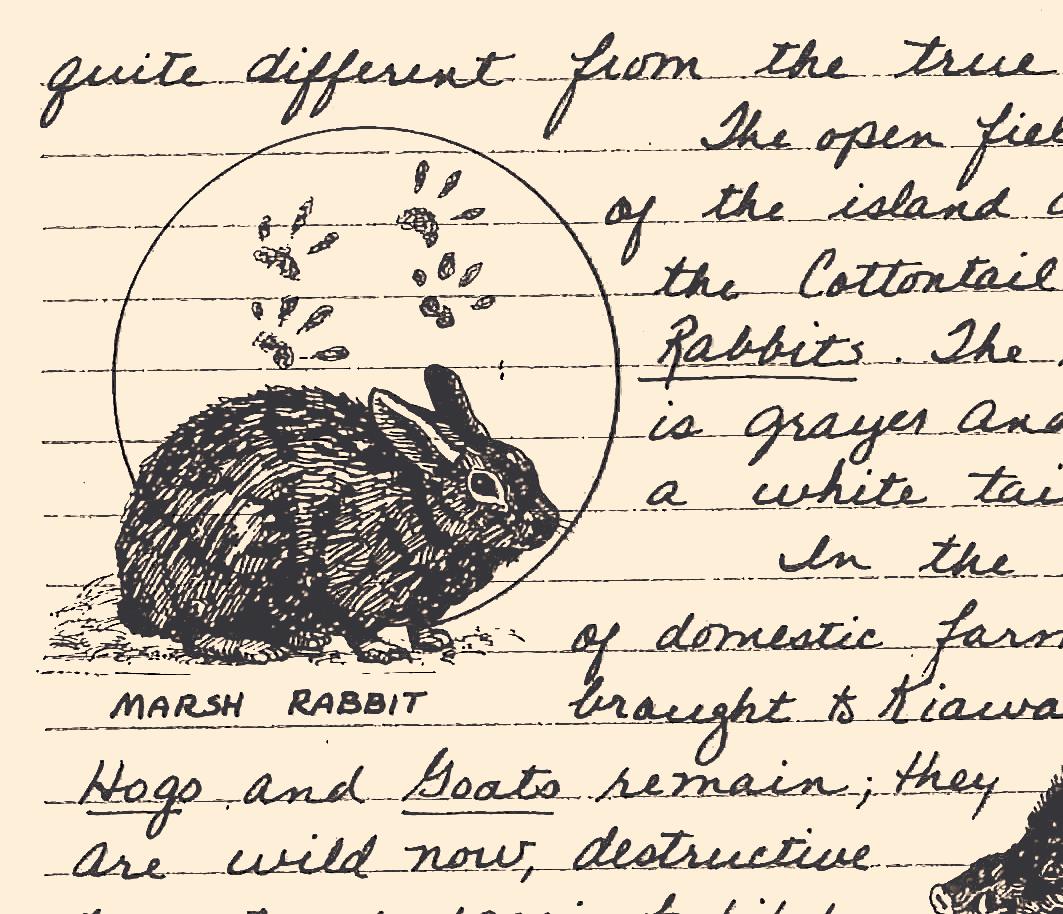 quite different from the true
The open fiel
of the island
the Cottontail
Rabbits. The
is grayer and
a white tai
In the
of domestic farm
brought to Kiawa
MARSH RABBIT
Hogs and Goats remain; they
are wild now, destructive